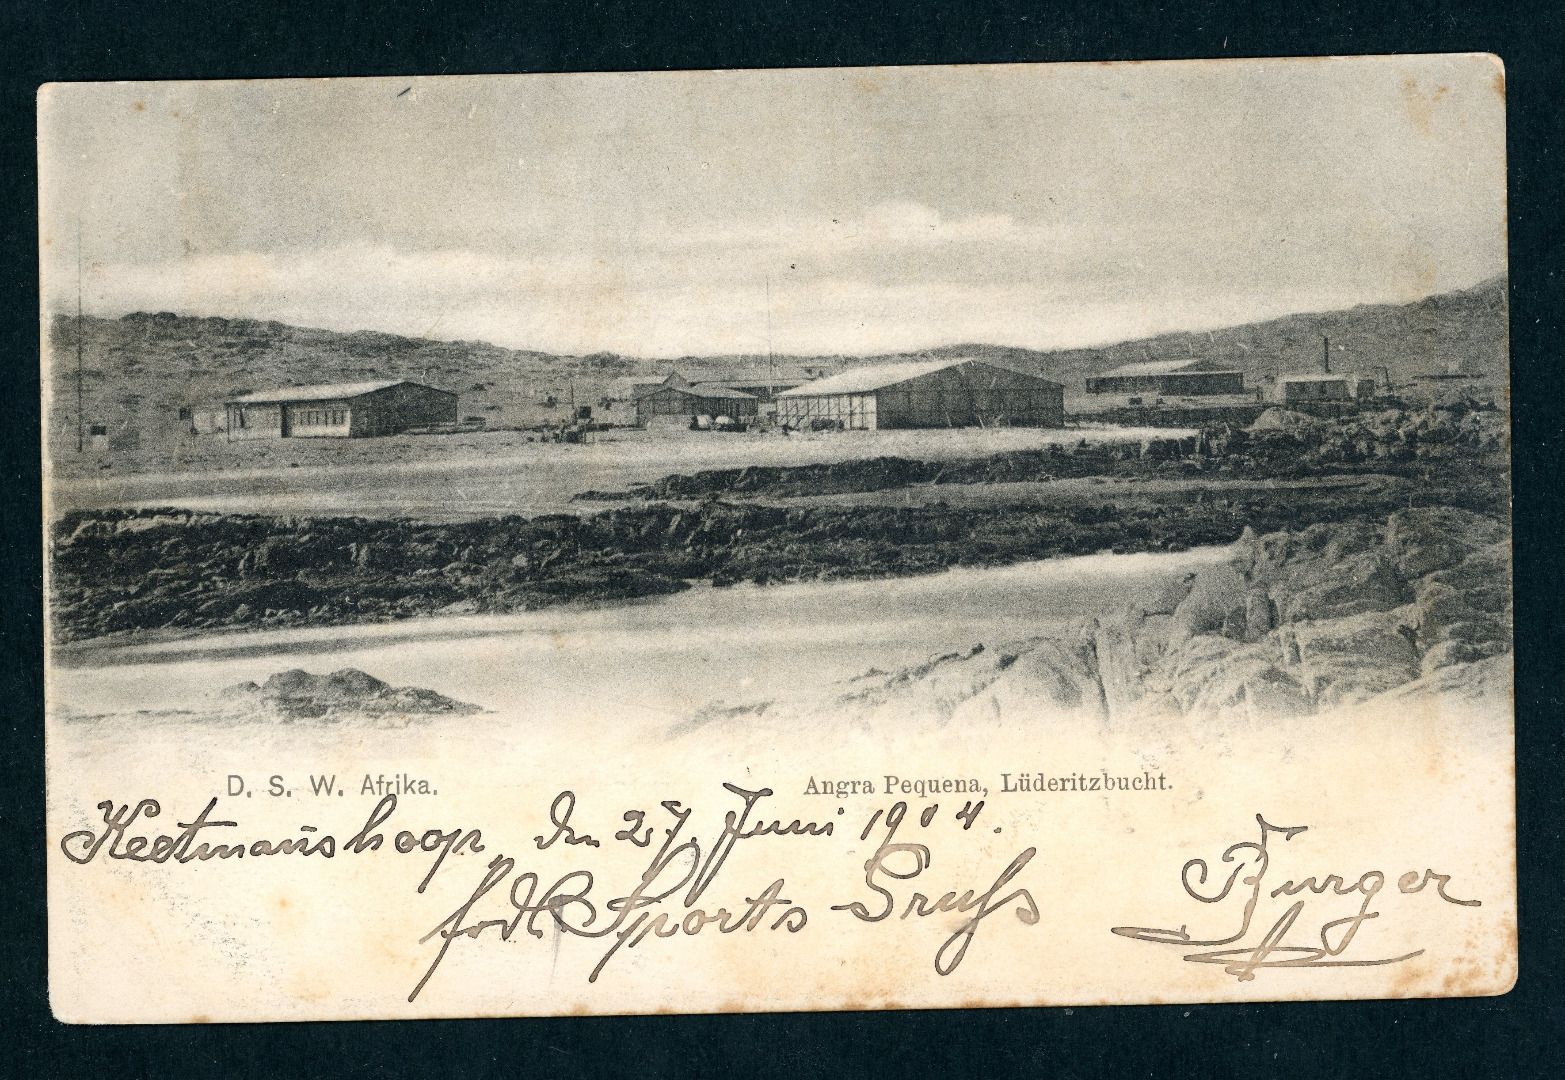 D. S. W. Afrika.
Angra Pequena, Lüderitzbucht.
Keetmanshoop, den 27. Juni 1904.
frdl. Sports-Gruss
Burger